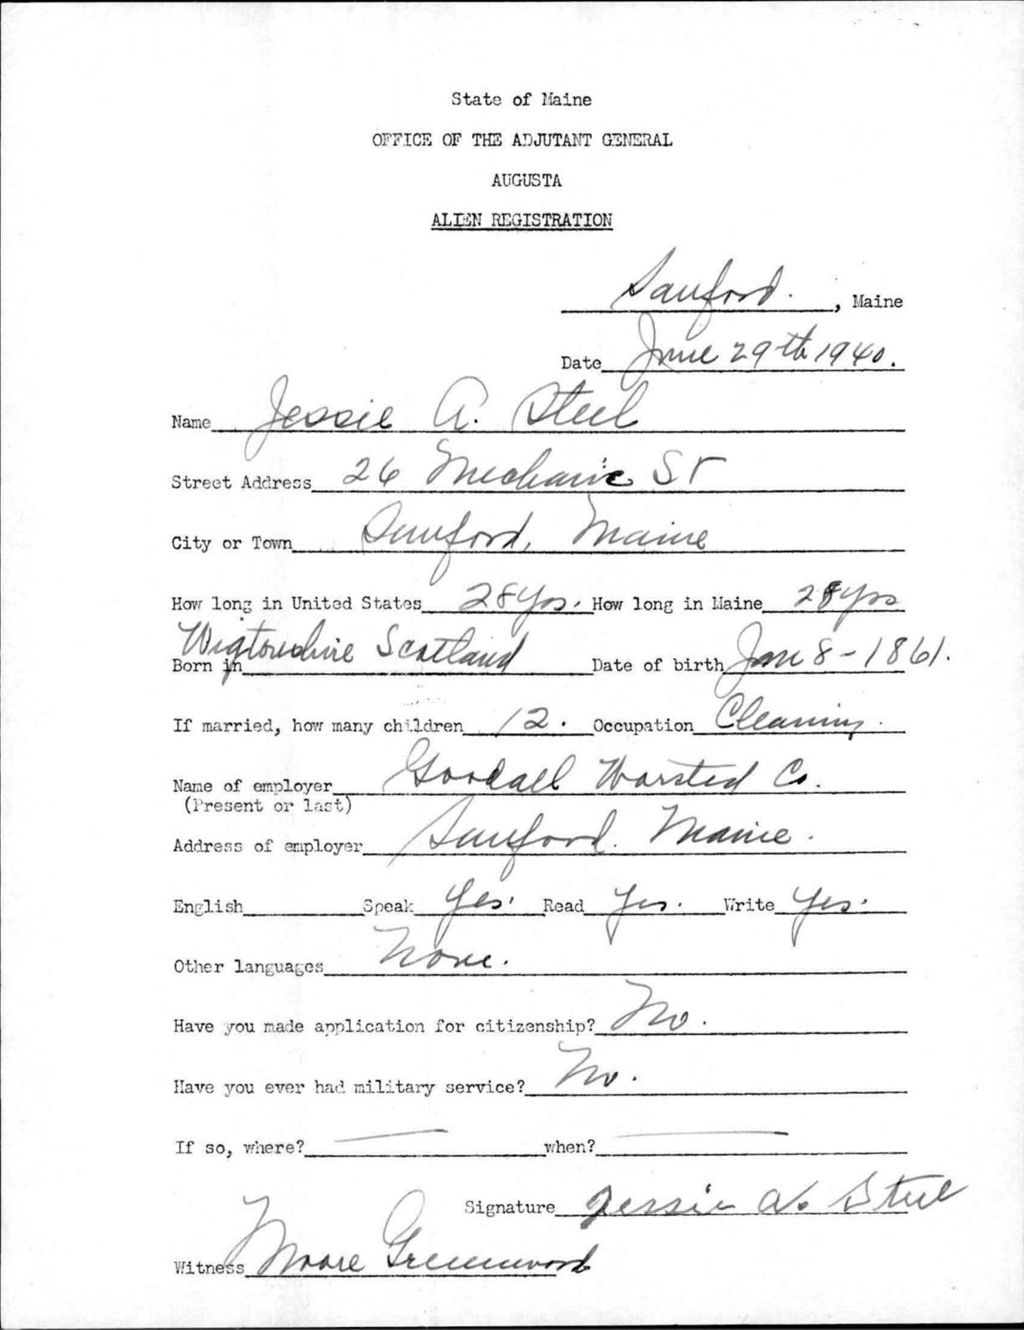 State of Maine
OFFICE OF THE ADJUTANT GENERAL
AUGUSTA
ALIEN REGISTRATION
Sanford. , Maine
Date June 29th 1940.
Name Jessie A. Steel
Street Address 26 Mechanic St
City or Town Sanford, Maine
How long in United States 28 Yrs. How long in Maine 28 Yrs
Born in Wigtonshire Scotland Date of birth Jan 8 - 1861.
If married, how many children 12. Occupation Cleaning.
Name of employer Goodall Worsted Co.
(Present or last)
Address of employer Sanford. Maine.
English Speak Yes. Read Yes. Write Yes.
Other languages None.
Have you made application for citizenship? No.
Have you ever had military service? No.
If so, where? — when? —
Signature Jessie A. Steel
Witness Moore Greenwood